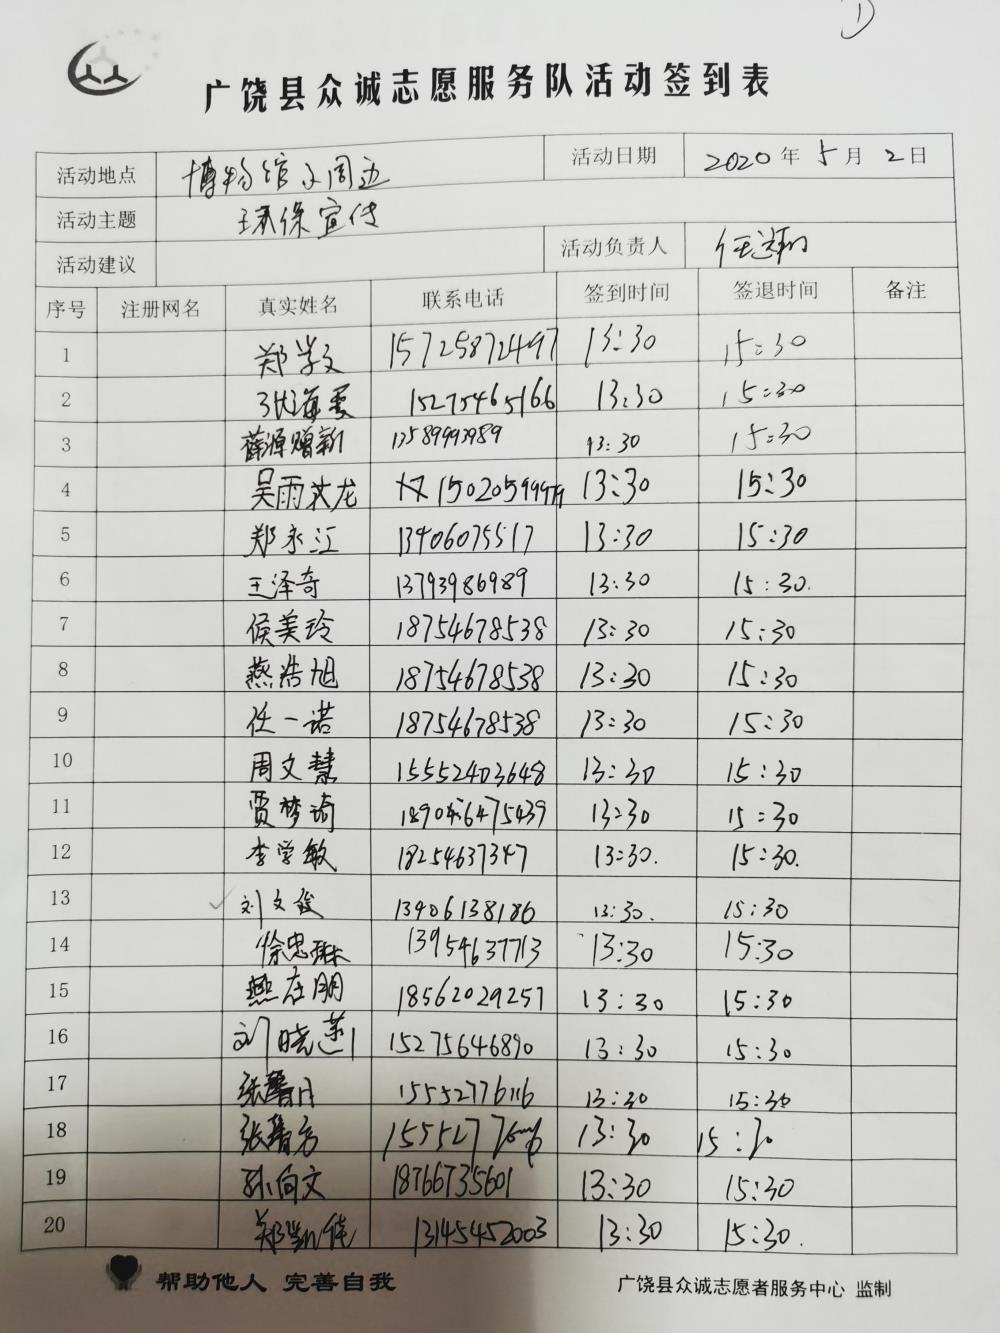 ①
广饶县众诚志愿服务队活动签到表
活动地点 博物馆及周边 活动日期 2020年5月2日
活动主题 环保宣传
活动建议 活动负责人
序号 注册网名 真实姓名 联系电话 签到时间 签退时间 备注
1 郑学文 15725872497 13:30 15:30
2 张海霞 15275465166 13:30 15:30
3 薛源赠新 13589993989 13:30 15:30
4 吴雨龙 15020599979 13:30 15:30
5 郑永江 13406075517 13:30 15:30
6 王泽奇 13793986989 13:30 15:30.
7 侯美玲 18754678538 13:30 15:30
8 燕浩旭 18754678538 13:30 15:30
9 任一诺 18754678538 13:30 15:30
10 周文慧 15552403648 13:30 15:30
11 贾梦琦 13:30 15:30
12 李学敏 18254637347 13:30. 15:30.
13 刘文俊 13406138186 13:30. 15:30
14 徐忠琳 13954637713 13:30 15:30
15 燕在朋 18562029257 13:30 15:30
16 刘晓莲 15275646890 13:30 15:30
17 张馨月 15552776116 13:30 15:30
18 张馨方 13:30 15:30
19 孙向文 18766735601 13:30 15:30
20 郑凯健 13145452003 13:30 15:30.
帮助他人 完善自我 广饶县众诚志愿者服务中心 监制